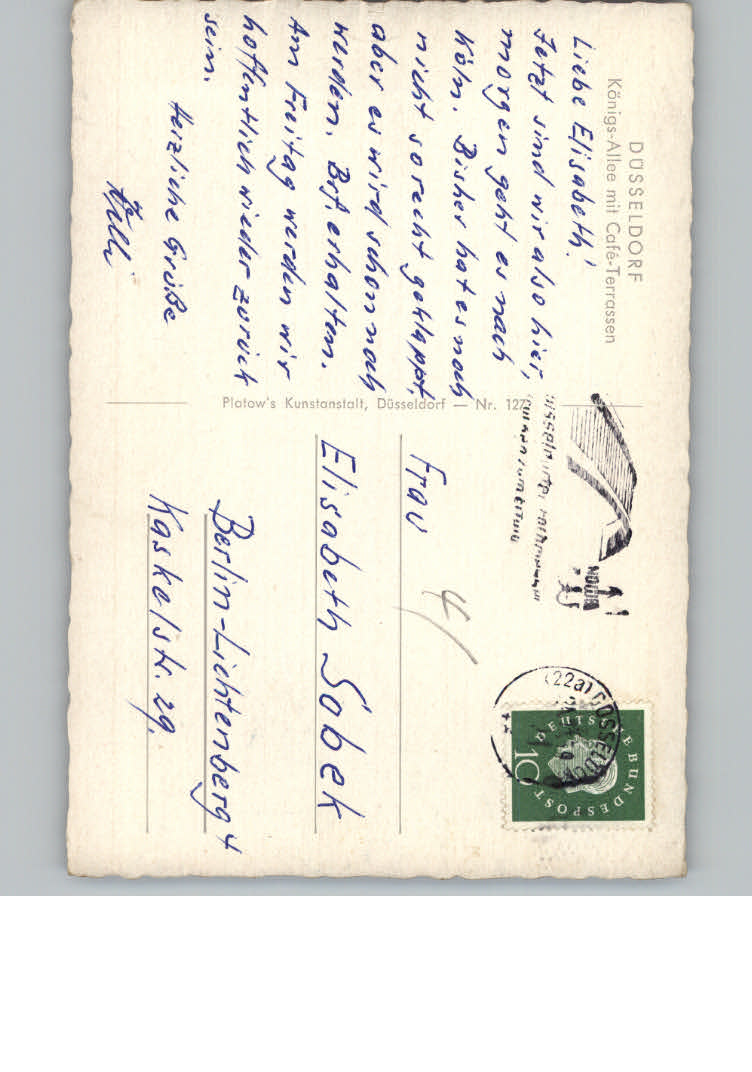 DÜSSELDORF
Königs-Allee mit Café-Terrassen
Liebe Elisabeth!
Jetzt sind wir also hier,
morgen geht es nach
Köln. Bisher hat es noch
nicht so recht geklappt,
aber es wird schon noch
werden. Brf. erhalten.
Am Freitag werden wir
hoffentlich wieder zurück
sein.
Herzliche Grüße
Willi
Platow's Kunstanstalt, Düsseldorf — Nr. 127
(22a) DÜSSELDO
DEUTSCHE BUNDESPOST
10
4/
Frau
Elisabeth Sobek
Berlin-Lichtenberg 4
Kaskelstr. 29.